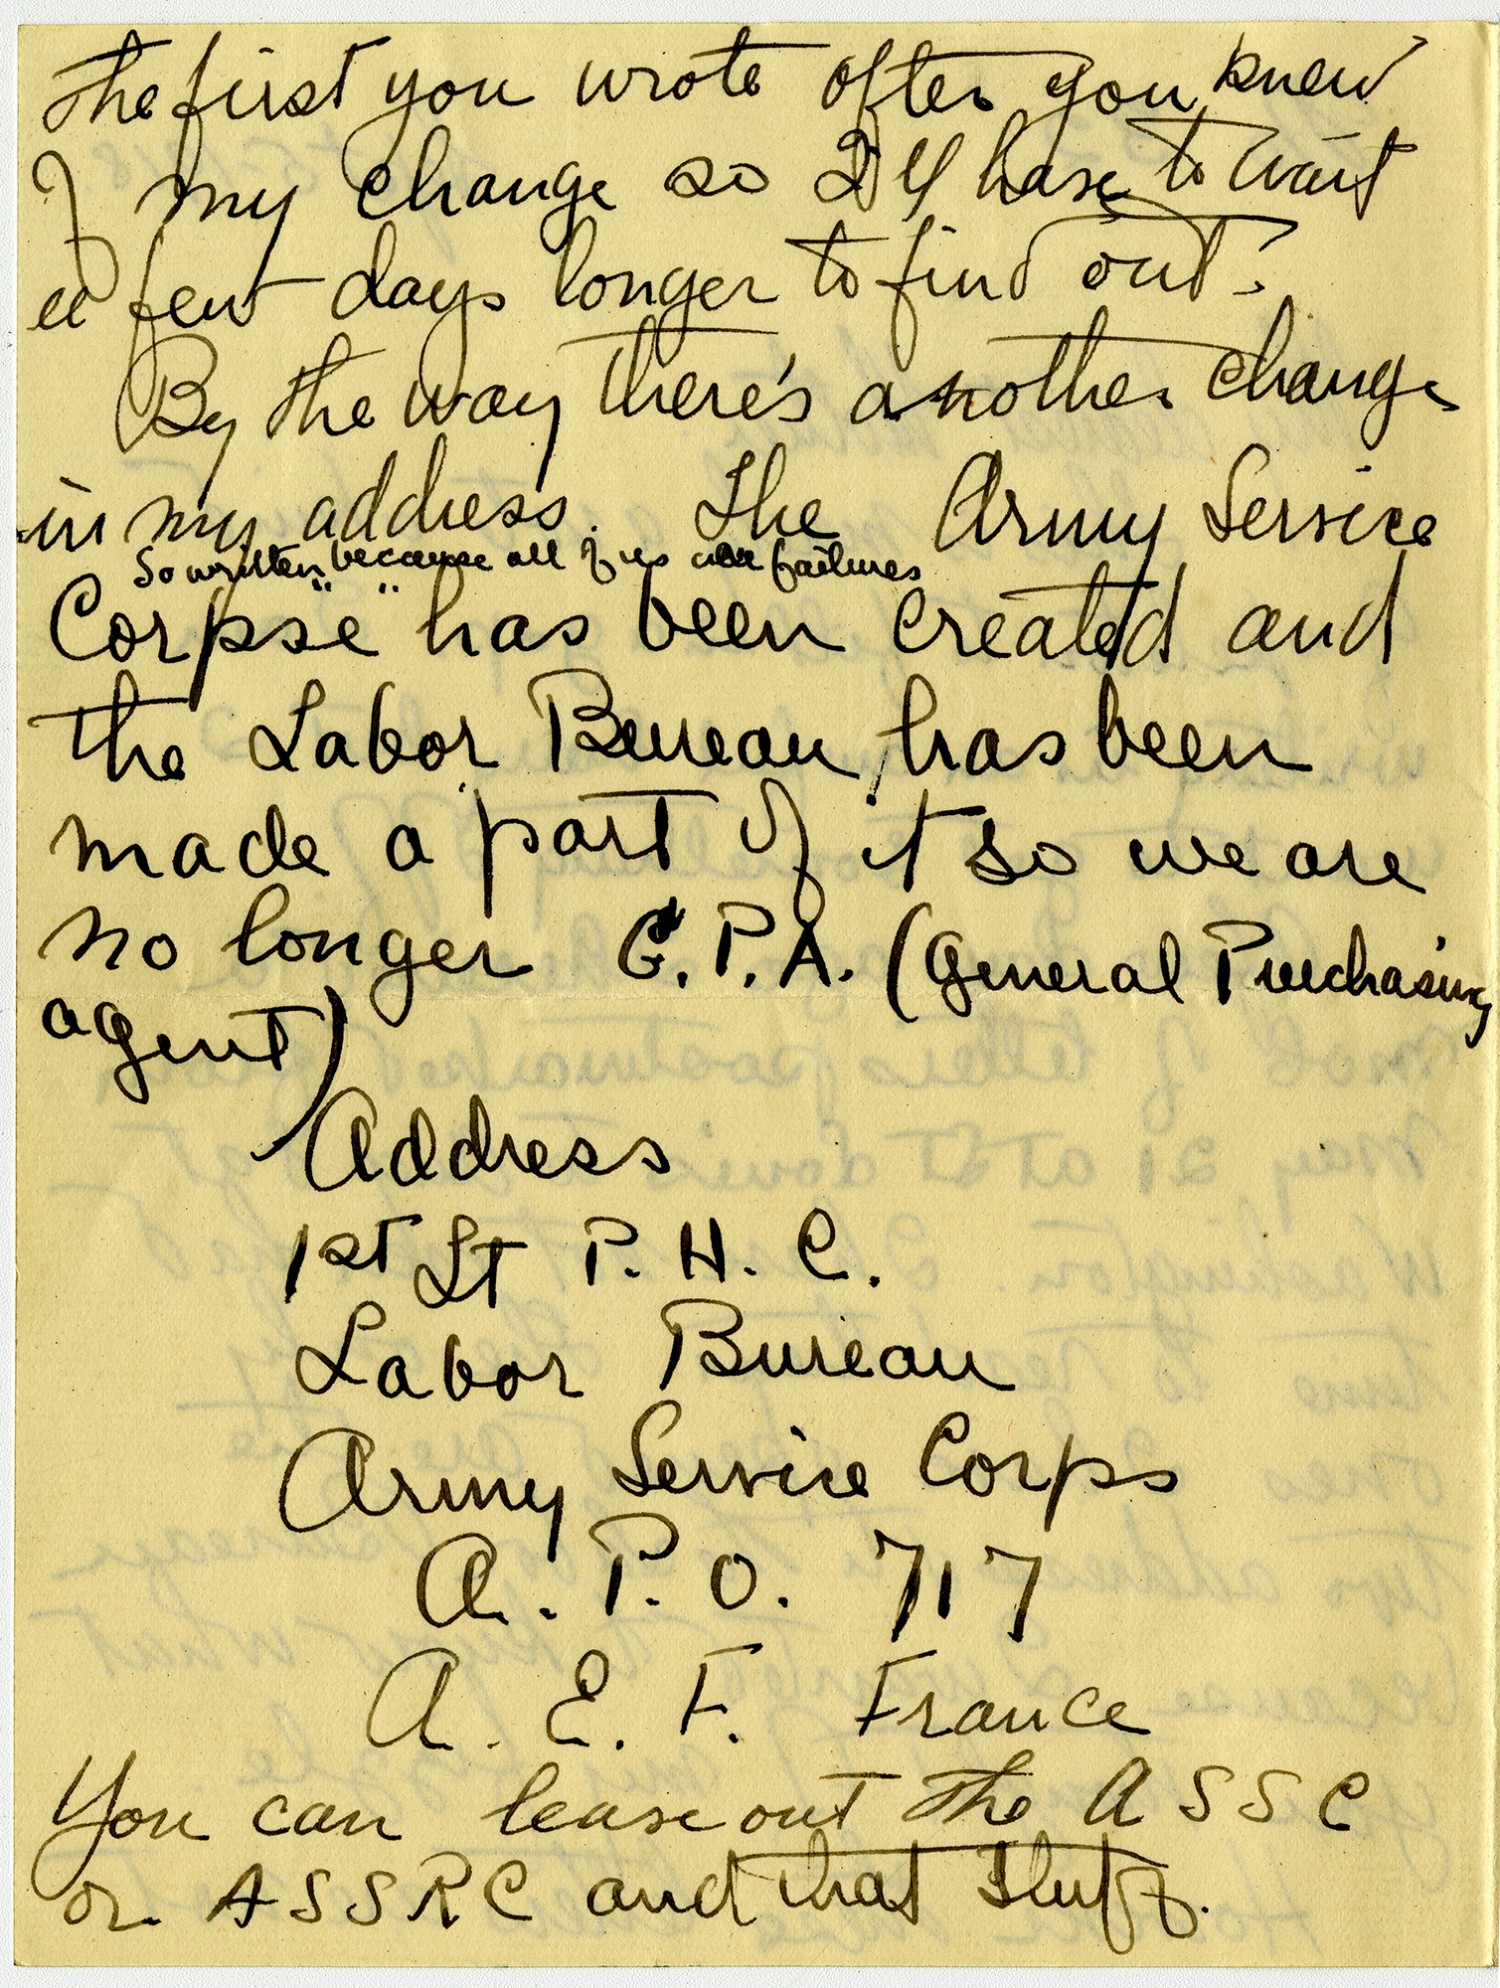 the first you wrote after you knew
of my change so I'll have to wait
a few days longer to find out.
By the way there's another change
in my address. The Army Service
So written because all of us are failures
Corpse" has been created and
the Labor Bureau has been
made a part of it so we are
no longer G.P.A. (General Purchasing
agent)
Address
1st Lt P. H. C.
Labor Bureau
Army Service Corps
A. P. O. 717
A. E. F. France
You can leave out the A S S C
or A S S R C and that stuff.